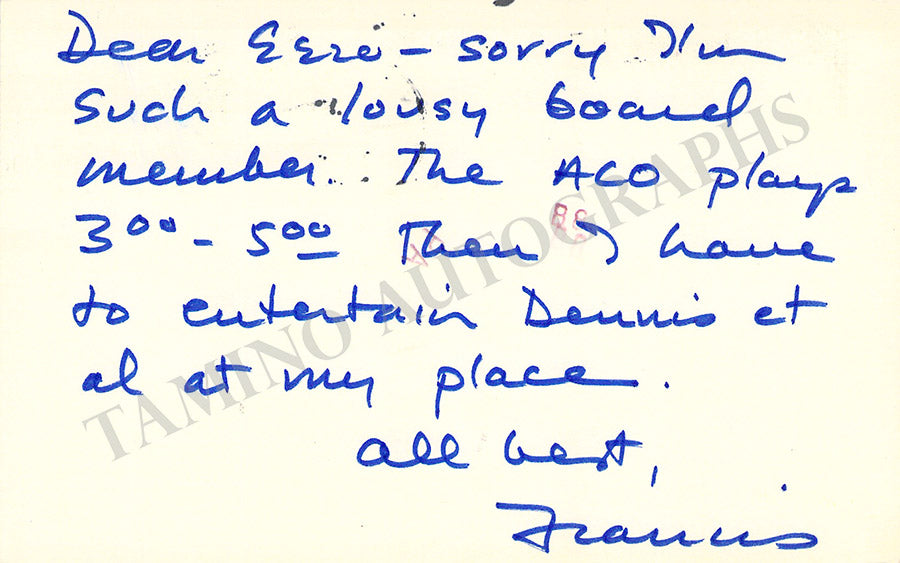 Dear Ezra - sorry I'm
such a lousy board
member. The ACO plays
3⁰⁰ - 5⁰⁰ Then I have
to entertain Dennis et
al at my place.
all best,
Francis
TAMINO AUTOGRAPHS